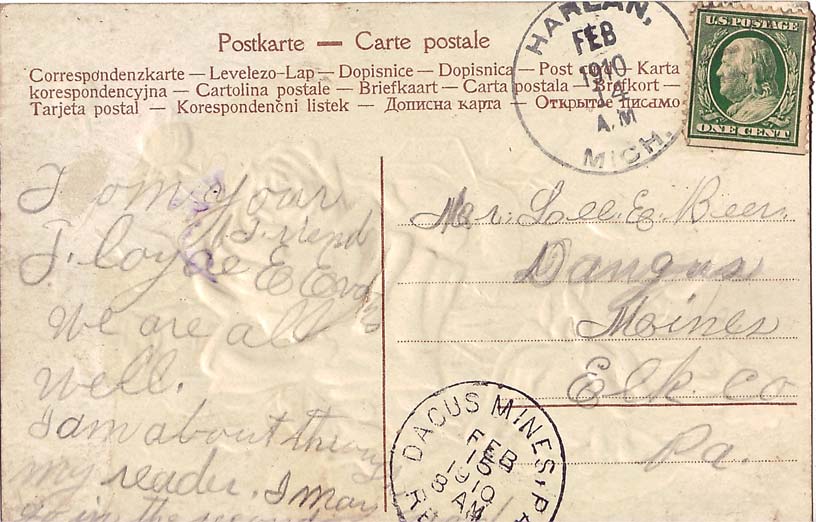 Postkarte — Carte postale
Correspondenzkarte — Levelezo-Lap — Dopisnice — Dopisnica — Post — Karta
korespondencyjna — Cartolina postale — Briefkaart — Carta postala — Brefkort —
Tarjeta postal — Korespondenčni listek — Дописна карта — Открытое письмо
HARLAN,
FEB
1910
14
A.M
MICH.
U.S. POSTAGE
ONE CENT
From your
Friend
E Evans
We are all
well.
I am about through
my reader. I may
go in the second
Mr. Lee E. Beers
Dangus
Moines
Elk Co
Pa.
DAGUS MINES, PA
FEB
15
1910
8 AM